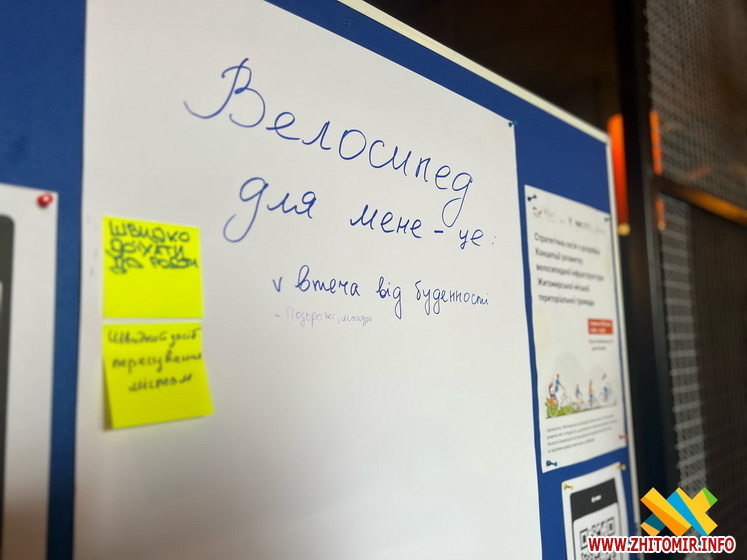 Велосипед
для мене - це:
v втеча від буденності
- Подорожі,
ШВИДКО
ДОЇХАТИ
ДО РОБОТИ
Швидкий засіб
пересування
містом
Стратегічна сесія з розробки
Концепції розвитку
велосипедної інфраструктури
Житомирської міської
територіальної громади
WWW.ZHITOMIR.INFO